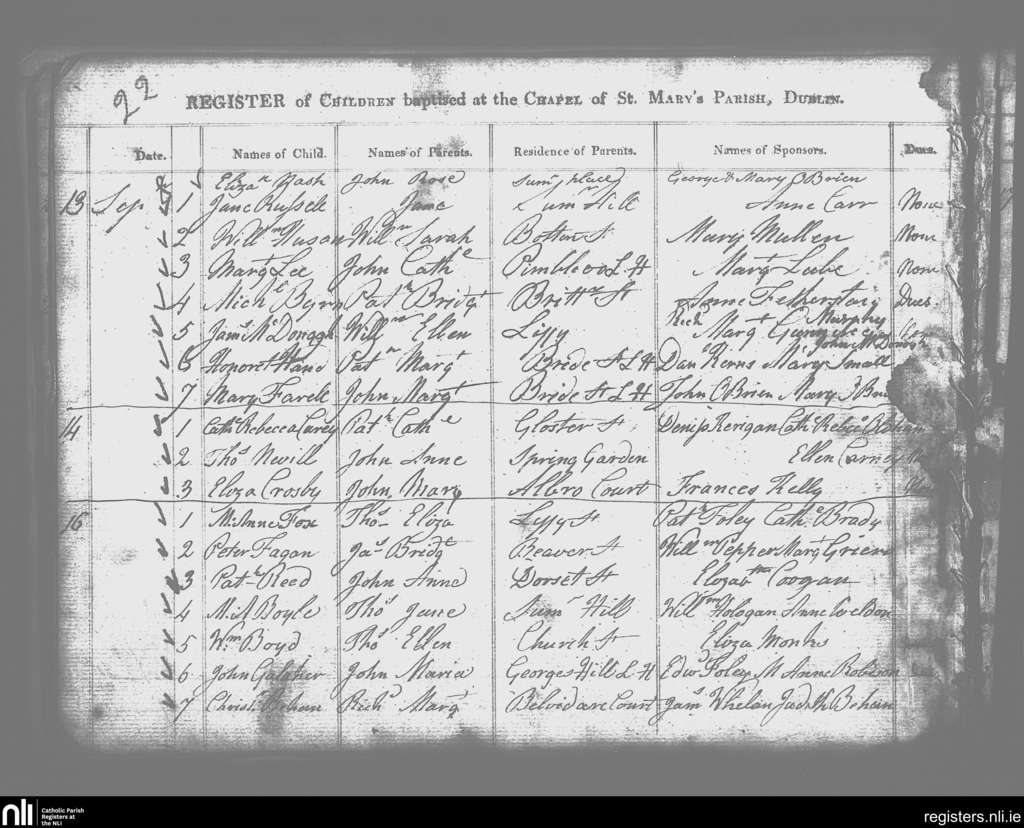 22
REGISTER of CHILDREN baptised at the CHAPEL of St. MARY'S PARISH, DUBLIN.
Date. Names of Child. Names of Parents. Residence of Parents. Names of Sponsors. Dues.
Elizath Nash John Rose Sumr place George & Mary O'Brien
13 Sep 1 Jane Russell Jane Sumr Hill Anne Carr None
2 Willm Willm Sarah Bolton St Mary Mullen None
3 Margt Lee John Cathe L H Margt None
4 Michl Byrn Patk Bridgt Britn St Anne Dues
5 Jams McDonogh Willm Ellen Liffy Richd Murphy Margt John McDonogh
6 Honor Hand Pat Margt Bride St L H Danl Mary Small
7 Mary Farell John Margt Bride St L H John O'Brien Mary
14 1 Cathe Rebecca Carey Patk Cathe Gloster St Deniss Kerigan Cathe
2 Thos Nevill John Anne Spring Garden Ellen Carney
3 Eliza Crosby John Mary Albro Court Frances Kelly
16 1 M. Anne Fox Thos Eliza Liffy St Patk Foley Cathe Brady
2 Peter Fagan Jas Bridgt Beaver St Willm Pepper Margt
3 Patk Reed John Anne Dorset St Elizabth Coogan
4 M. A Boyle Thos Jane Sumr Hill Willm Hologan Anne Weldon
5 Wm Boyd Thos Ellen Church St Eliza Monks
6 John John Maria Georges Hill L H Edwd Foley M Anne
7 Christr Behan Richd Margt Belvidare Court Jams Whelan Judith Behan
nli Catholic Parish
Registers at
the NLI
registers.nli.ie